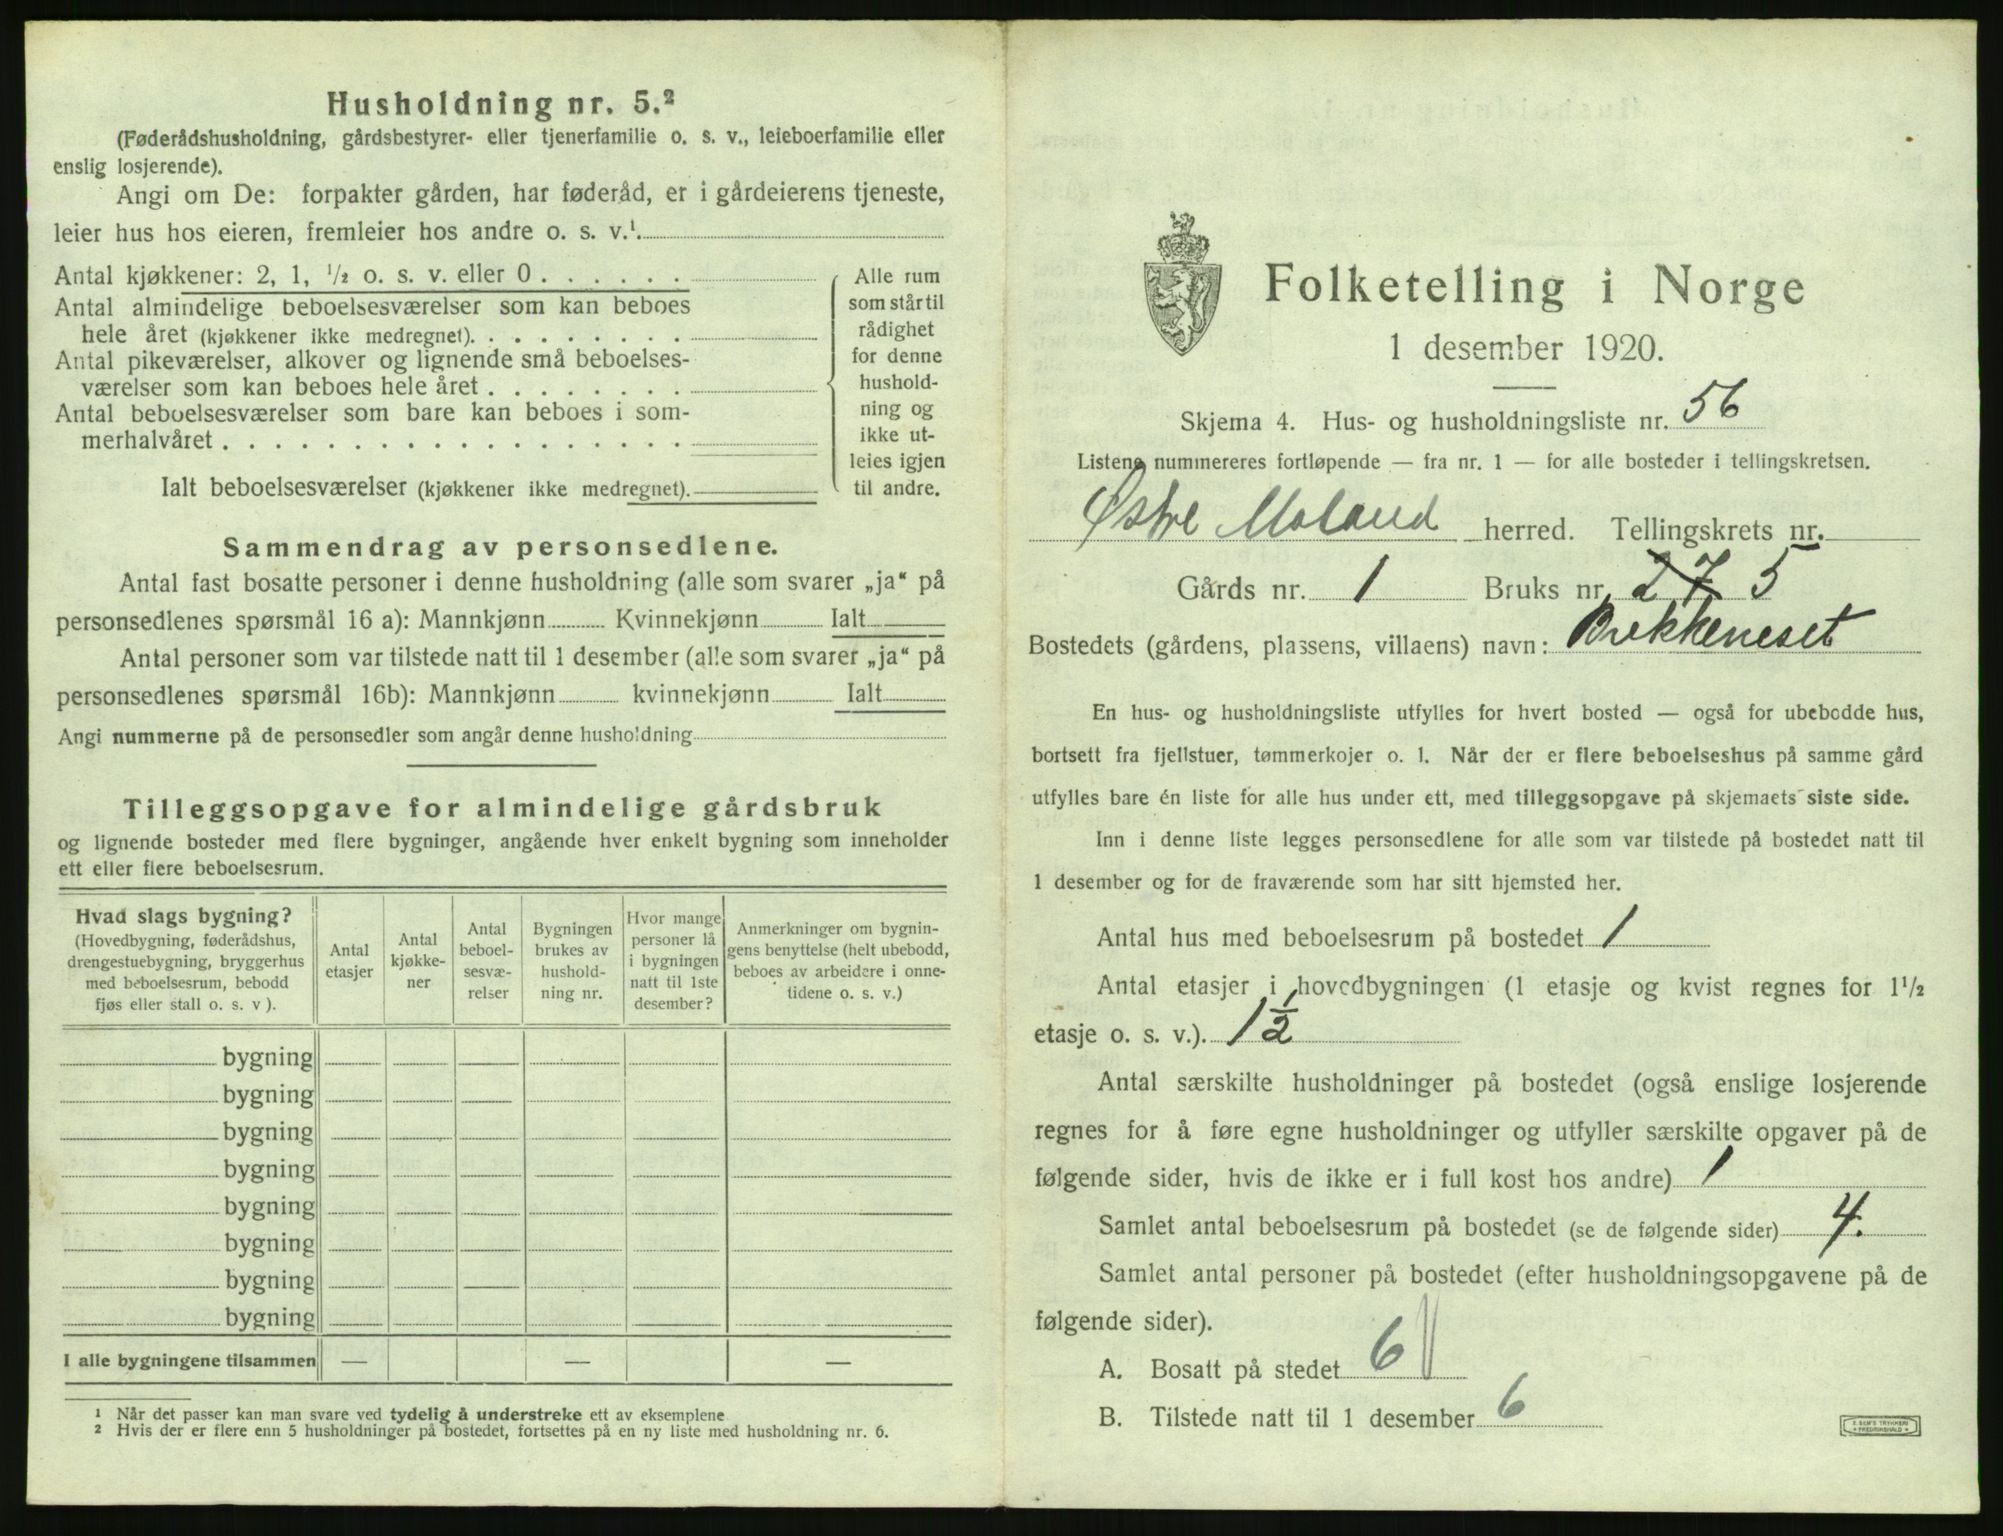 Husholdning nr. 5.²
(Føderådshusholdning, gårdsbestyrer- eller tjenerfamilie o. s. v., leieboerfamilie eller
enslig losjerende).
Angi om De: forpakter gården, har føderåd, er i gårdeierens tjeneste,
leier hus hos eieren, fremleier hos andre o. s. v.¹.
Antal kjøkkener: 2, 1, ½ o. s. v. eller 0 . . . . . .
Antal almindelige beboelsesværelser som kan beboes
hele året (kjøkkener ikke medregnet). . . . . . . . .
Antal pikeværelser, alkover og lignende små beboelses-
værelser som kan beboes hele året . . . . . . . .
Antal beboelsesværelser som bare kan beboes i som-
merhalvåret . . . . . . . . . . . . . . . . . .
Ialt beboelsesværelser (kjøkkener ikke medregnet).
Alle rum
som står til
rådighet
for denne
hushold-
ning og
ikke ut-
leies igjen
til andre.
Sammendrag av personsedlene.
Antal fast bosatte personer i denne husholdning (alle som svarer „ja“ på
personsedlenes spørsmål 16 a): Mannkjønn Kvinnekjønn Ialt
Antal personer som var tilstede natt til 1 desember (alle som svarer „ja“ på
personsedlenes spørsmål 16b): Mannkjønn kvinnekjønn Ialt
Angi nummerne på de personsedler som angår denne husholdning
Tilleggsopgave for almindelige gårdsbruk
og lignende bosteder med flere bygninger, angående hver enkelt bygning som inneholder
ett eller flere beboelsesrum.
Hvad slags bygning?
(Hovedbygning, føderådshus,
drengestuebygning, bryggerhus
med beboelsesrum, bebodd
fjøs eller stall o. s. v ).
Antal
etasjer
Antal
kjøkke-
ner
Antal
beboel-
sesvæ-
relser
Bygningen
brukes av
hushold-
ning nr.
Hvor mange
personer lå
i bygningen
natt til 1ste
desember?
Anmerkninger om bygnin-
gens benyttelse (helt ubebodd,
beboes av arbeidere i onne-
tidene o. s. v.)
bygning
bygning
bygning
bygning
bygning
bygning
bygning
bygning
I alle bygningene tilsammen — — —
¹ Når det passer kan man svare ved tydelig å understreke ett av eksemplene
² Hvis der er flere enn 5 husholdninger på bostedet, fortsettes på en ny liste med husholdning nr. 6.
Folketelling i Norge
1 desember 1920.
Skjema 4. Hus- og husholdningsliste nr. 56
Listene nummereres fortløpende — fra nr. 1 — for alle bosteder i tellingskretsen.
Østre Moland herred. Tellingskrets nr.
Gårds nr. 1 Bruks nr. 27 5
Bostedets (gårdens, plassens, villaens) navn: Brekkeneset
En hus- og husholdningsliste utfylles for hvert bosted — også for ubebodde hus,
bortsett fra fjellstuer, tømmerkojer o. l. Når der er flere beboelseshus på samme gård
utfylles bare én liste for alle hus under ett, med tilleggsopgave på skjemaets siste side.
Inn i denne liste legges personsedlene for alle som var tilstede på bostedet natt til
1 desember og for de fraværende som har sitt hjemsted her.
Antal hus med beboelsesrum på bostedet 1
Antal etasjer i hovedbygningen (1 etasje og kvist regnes for 1½
etasje o. s. v.). 1½
Antal særskilte husholdninger på bostedet (også enslige losjerende
regnes for å føre egne husholdninger og utfyller særskilte opgaver på de
følgende sider, hvis de ikke er i full kost hos andre) 1
Samlet antal beboelsesrum på bostedet (se de følgende sider) 4.
Samlet antal personer på bostedet (efter husholdningsopgavene på de
følgende sider).
A. Bosatt på stedet 6
B. Tilstede natt til 1 desember 6
E. SEM'S TRYKKERI
FREDRIKSHALD